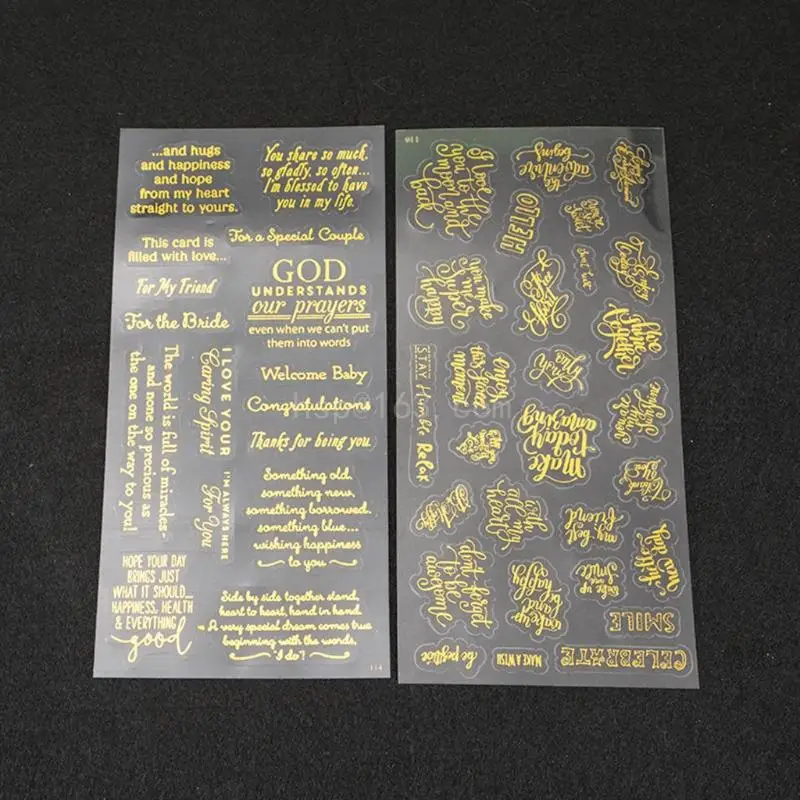 ...and hugs
and happiness
and hope
from my heart
straight to yours.
You share so much,
so gladly, so often...
I'm blessed to have
you in my life.
This card is
filled with love...
For a Special Couple
For My Friend
For the Bride
GOD
UNDERSTANDS
our prayers
even when we can't put
them into words
Welcome Baby
Congratulations
Thanks for being you.
The world is full of miracles-
and none so precious as
the one on the way to you!
I LOVE YOUR
Caring Spirit
I'M ALWAYS HERE
For You
Something old,
something new,
something borrowed,
something blue...
wishing happiness
to you
HOPE YOUR DAY
BRINGS JUST
WHAT IT SHOULD...
HAPPINESS, HEALTH
& EVERYTHING
good
Side by side together stand,
heart to heart, hand in hand.
A very special dream comes true
beginning with the words,
"I do"!
114
116
I love you
to the
moon and
back
the
adventure
begins
HELLO
you make
me super
happy
enjoy
this
moment
STAY
Humble
Relax
make
today
amazing
thank
you
with
all my
heart
my best
friend
don't forget
to be
awesome
wake up
and
be
happy
wake up
and
smile
SMILE
be positive
MAKE A WISH
CELEBRATE